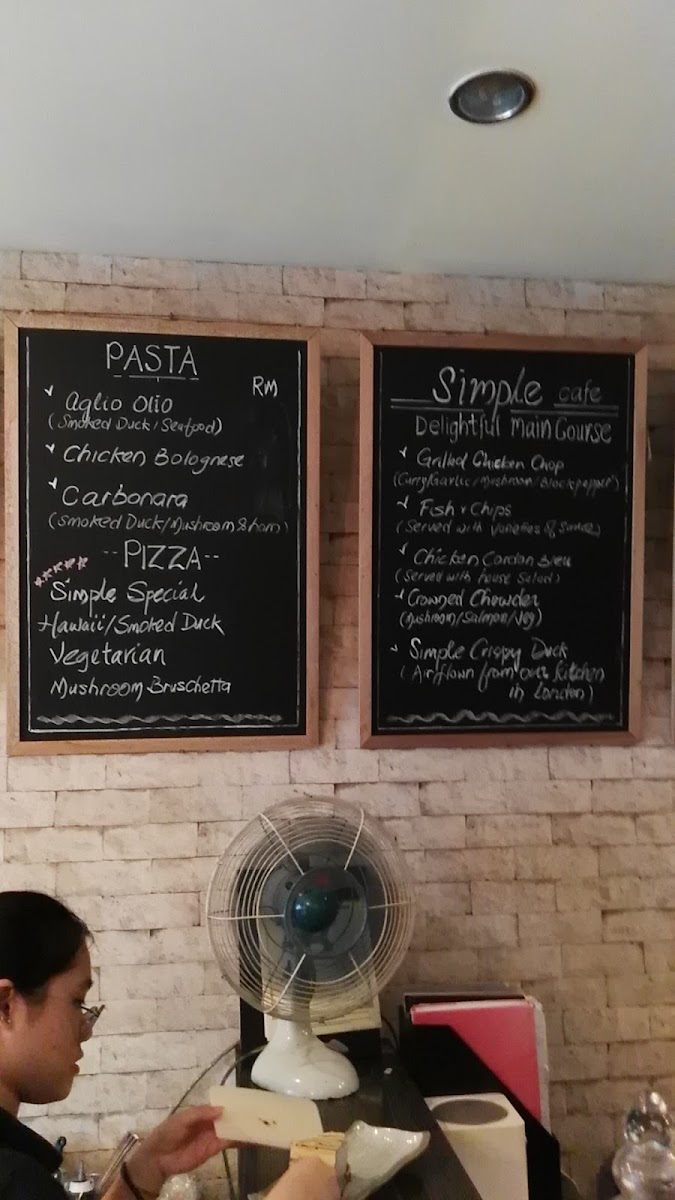 PASTA
RM
Aglio Olio
(Smoked Duck/Seafood)
Chicken Bolognese
Carbonara
(Smoked Duck/Mushroom & ham)
--PIZZA--
Simple Special
Hawaii/Smoked Duck
Vegetarian
Mushroom Bruschetta
Simple cafe
Delightful Main Course
Grilled Chicken Chop
(Curry/Garlic/Mushroom/Blackpepper)
Fish & Chips
(Served with varieties of sauce)
Chicken Cordon Bleu
(Served with house Salad)
Crowned Chowder
(Mushroom/Salmon/Veg)
Simple Crispy Duck
(Airflown from our kitchen
in London)